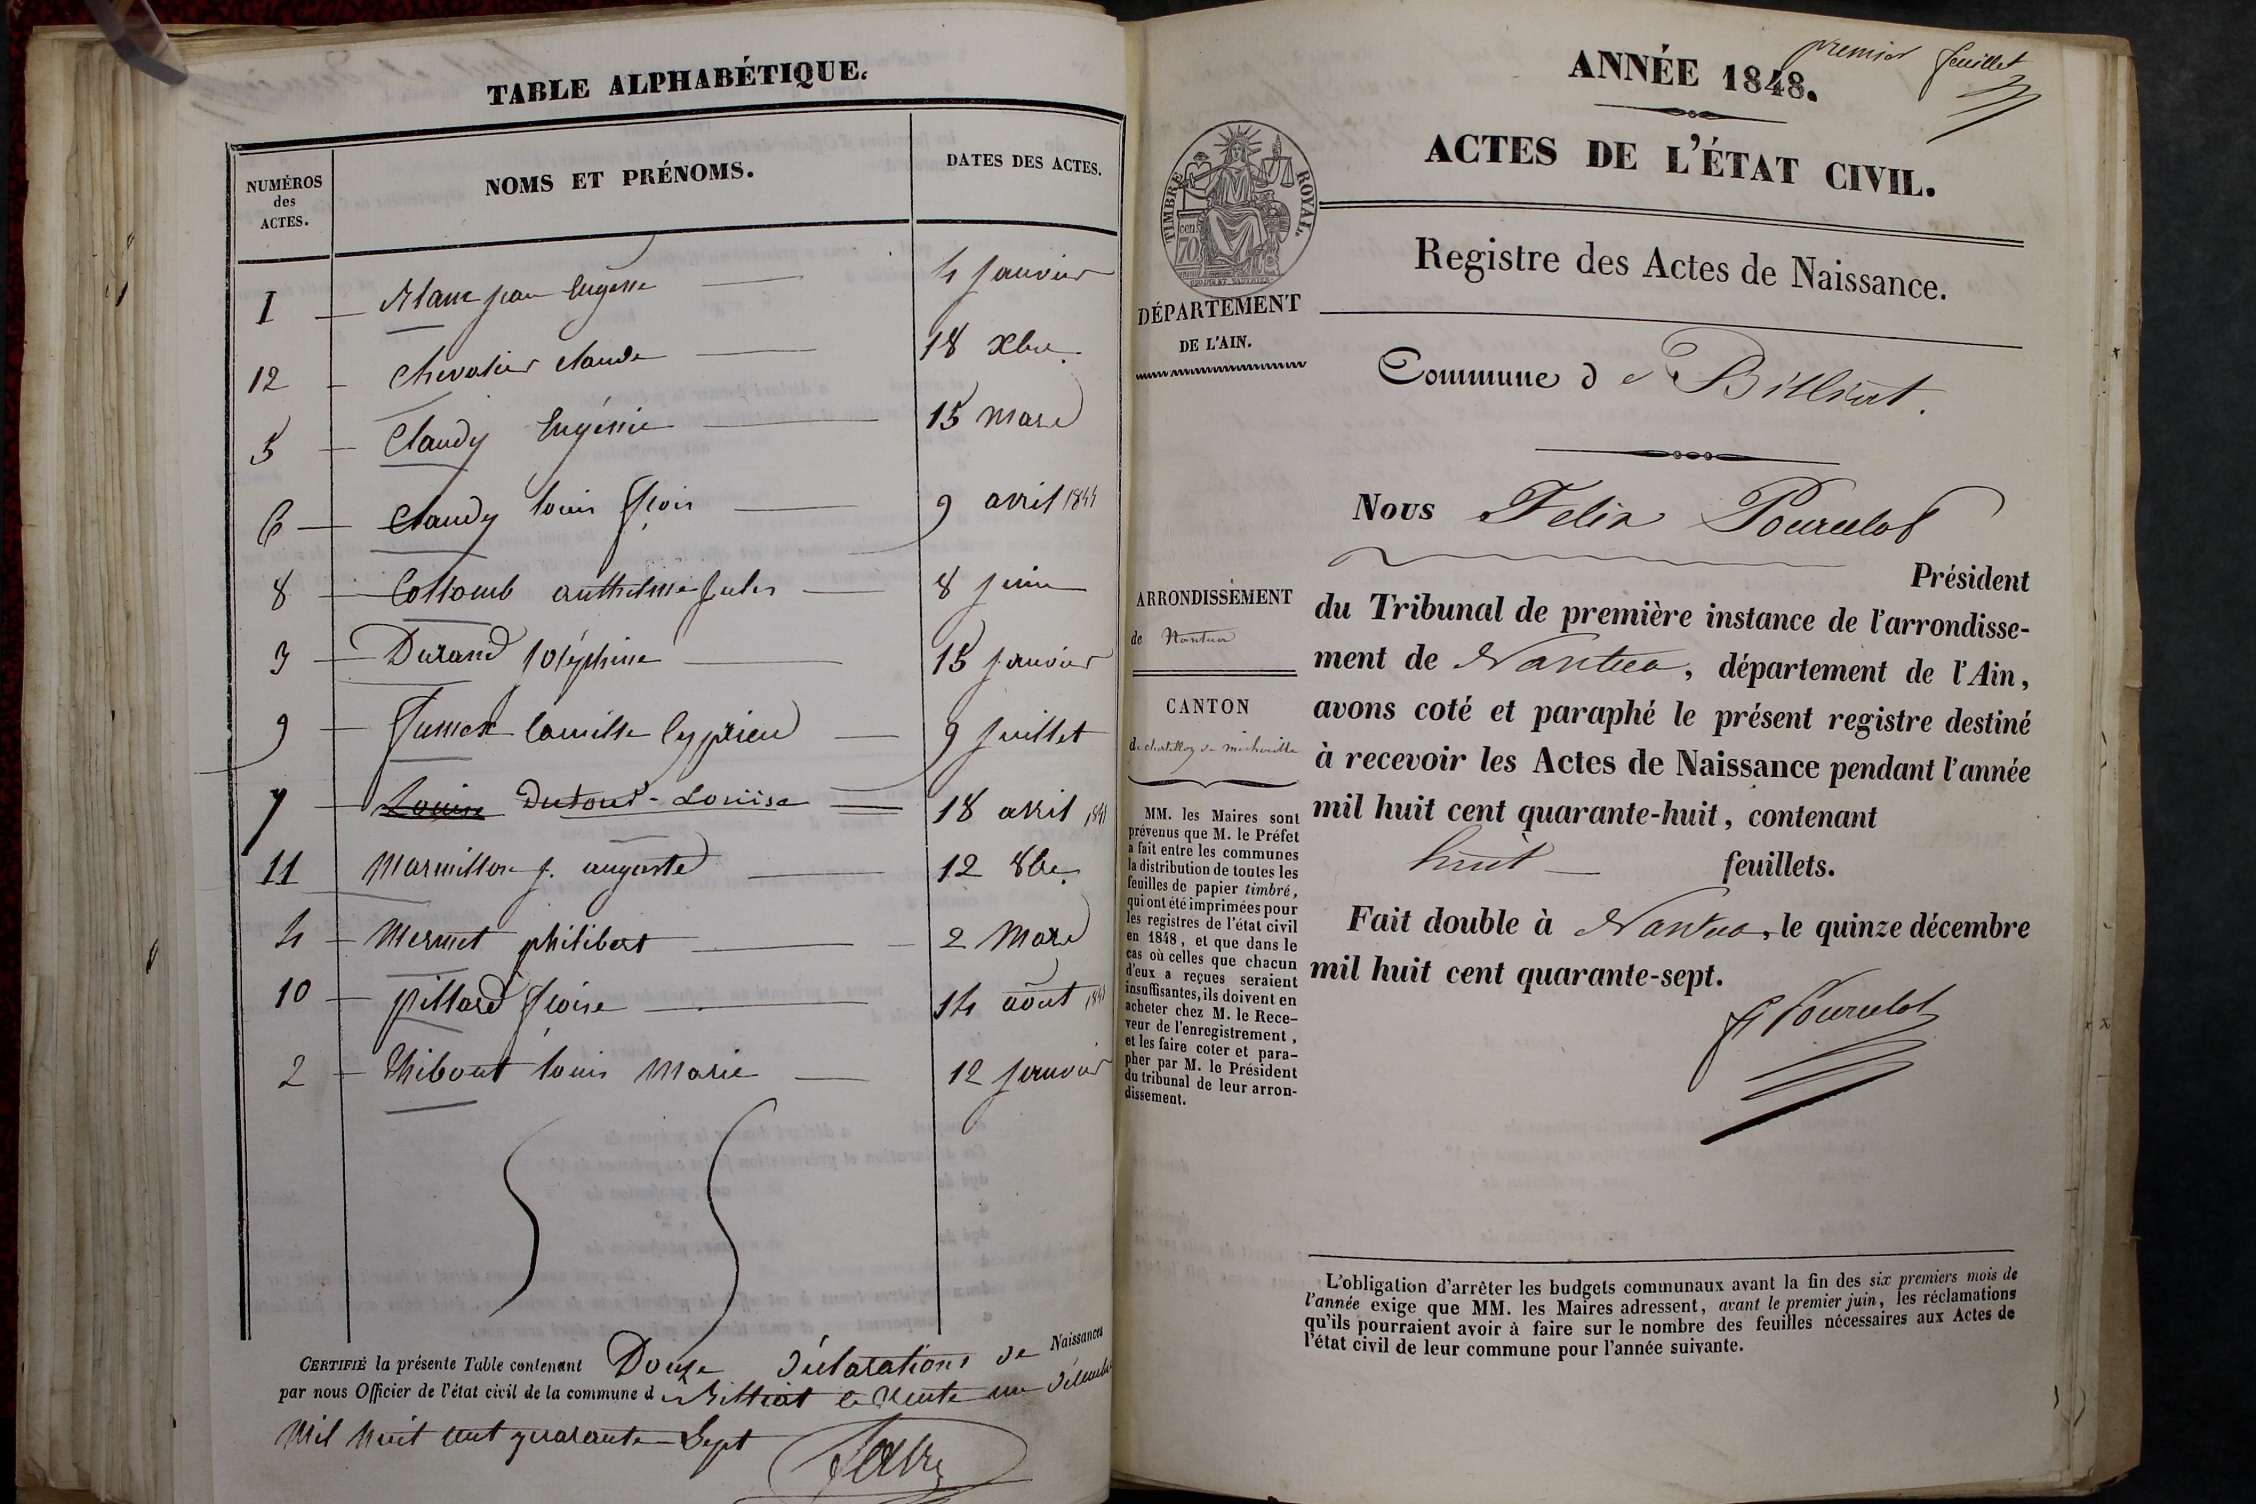 TABLE ALPHABÉTIQUE.
NUMÉROS des ACTES.
NOMS ET PRÉNOMS.
DATES DES ACTES.
1 Blanc jean Eugène 4 janvier
12 Chevalier Claude 18 Xbre.
5 Claudy Eugénie 15 mars
6 Claudy louis fçois 9 avril
8 Collomb anthelme jules 8 juin
3 Durand joséphine 15 janvier
9 Jumex Camille Cyprien 9 juillet
7 Louise Dufour - Louise 18 avril
11 Marmillon j. auguste 12 8bre.
4 Mermet philibert 2 mars
10 pillard fçoise 14 août
2 Thibout louis Marie 12 janvier
CERTIFIÉ la présente Table contenant Douze déclarations de Naissances
par nous Officier de l'état civil de la commune d e Billiat le trente un décembre
Mil huit cent quarante-Sept
premier feuillet
ANNÉE 1848.
ACTES DE L'ÉTAT CIVIL.
TIMBRE ROYAL.
70 cen.
Registre des Actes de Naissance.
DÉPARTEMENT
DE L'AIN.
Commune d e Billiat.
Nous Felix Pourcelot
Président
ARRONDISSEMENT
de Nantua
CANTON
de chatillon de michaille
du Tribunal de première instance de l'arrondisse-
ment de Nantua, département de l'Ain,
avons coté et paraphé le présent registre destiné
à recevoir les Actes de Naissance pendant l'année
mil huit cent quarante-huit, contenant
huit feuillets.
Fait double à Nantua, le quinze décembre
mil huit cent quarante-sept.
F Pourcelot
MM. les Maires sont
prévenus que M. le Préfet
a fait entre les communes
la distribution de toutes les
feuilles de papier timbré,
qui ont été imprimées pour
les registres de l'état civil
en 1848, et que dans le
cas où celles que chacun
d'eux a reçues seraient
insuffisantes, ils doivent en
acheter chez M. le Rece-
veur de l'enregistrement,
et les faire coter et para-
pher par M. le Président
du tribunal de leur arron-
dissement.
L'obligation d'arrêter les budgets communaux avant la fin des six premiers mois de
l'année exige que MM. les Maires adressent, avant le premier juin, les réclamations
qu'ils pourraient avoir à faire sur le nombre des feuilles nécessaires aux Actes de
l'état civil de leur commune pour l'année suivante.